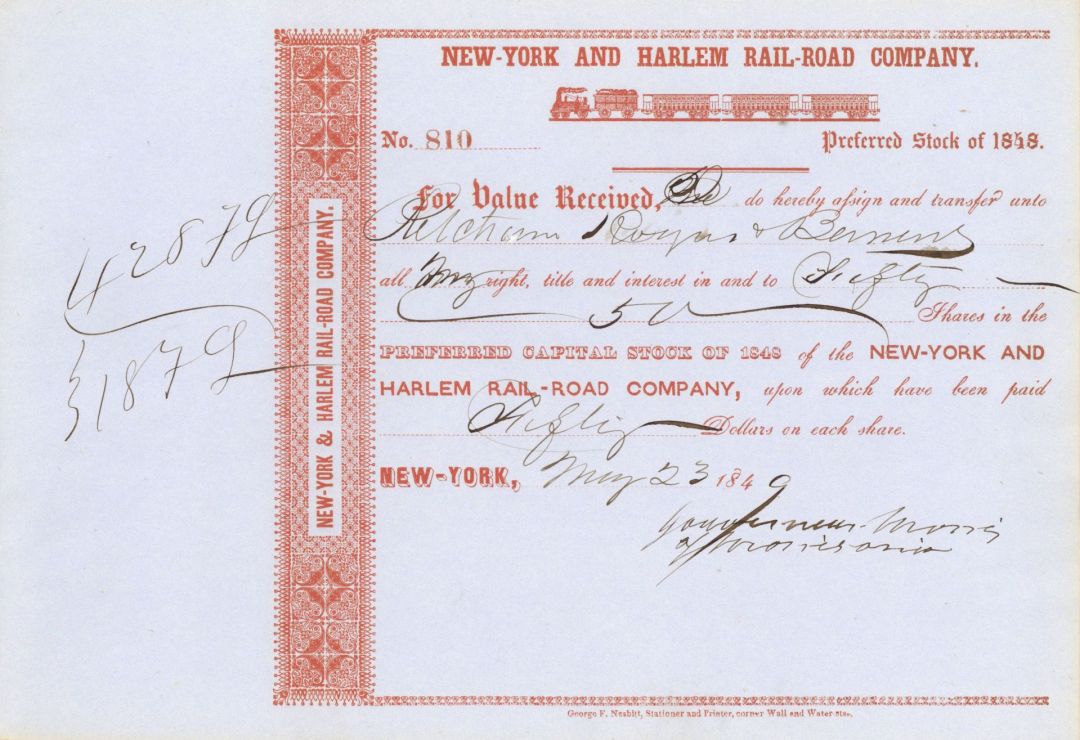 NEW-YORK AND HARLEM RAIL-ROAD COMPANY.
No. 810
Preferred Stock of 1848.
For Value Received, do hereby assign and transfer unto
Ketchum Rogers & Bement
all My right, title and interest in and to Fifty
50 Shares in the
PREFERRED CAPITAL STOCK OF 1848 of the NEW-YORK AND
HARLEM RAIL-ROAD COMPANY, upon which have been paid
Fifty Dollars on each share.
NEW-YORK, May 23 1849
Gouverneur Morris
of Morrisania
George F. Nesbitt, Stationer and Printer, corner Wall and Water-sts.
NEW-YORK & HARLEM RAIL-ROAD COMPANY.
42879
31879